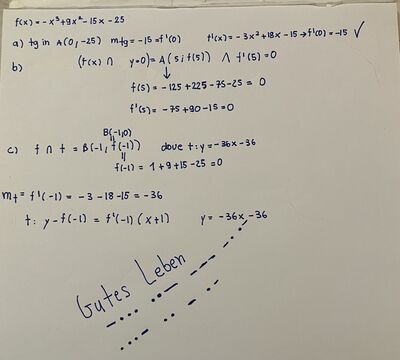 f(x) = -x³+9x²-15x-25
a) tg in A(0,-25) mtg=-15=f'(0) f'(x)=-3x²+18x-15→f'(0)=-15 ✓
b) (f(x) ∩ y=0)=A(5;f(5)) ∧ f'(5)=0
↓
f(5)=-125+225-75-25=0
f'(5)=-75+90-15=0
B(-1,0)
c) f ∩ t = B(-1, f(-1)) dove t:y=-36x-36
f(-1) = 1+9+15-25=0
mt = f'(-1) = -3-18-15=-36
t: y-f(-1) = f'(-1) (x+1) y=-36x-36
Gutes Leben